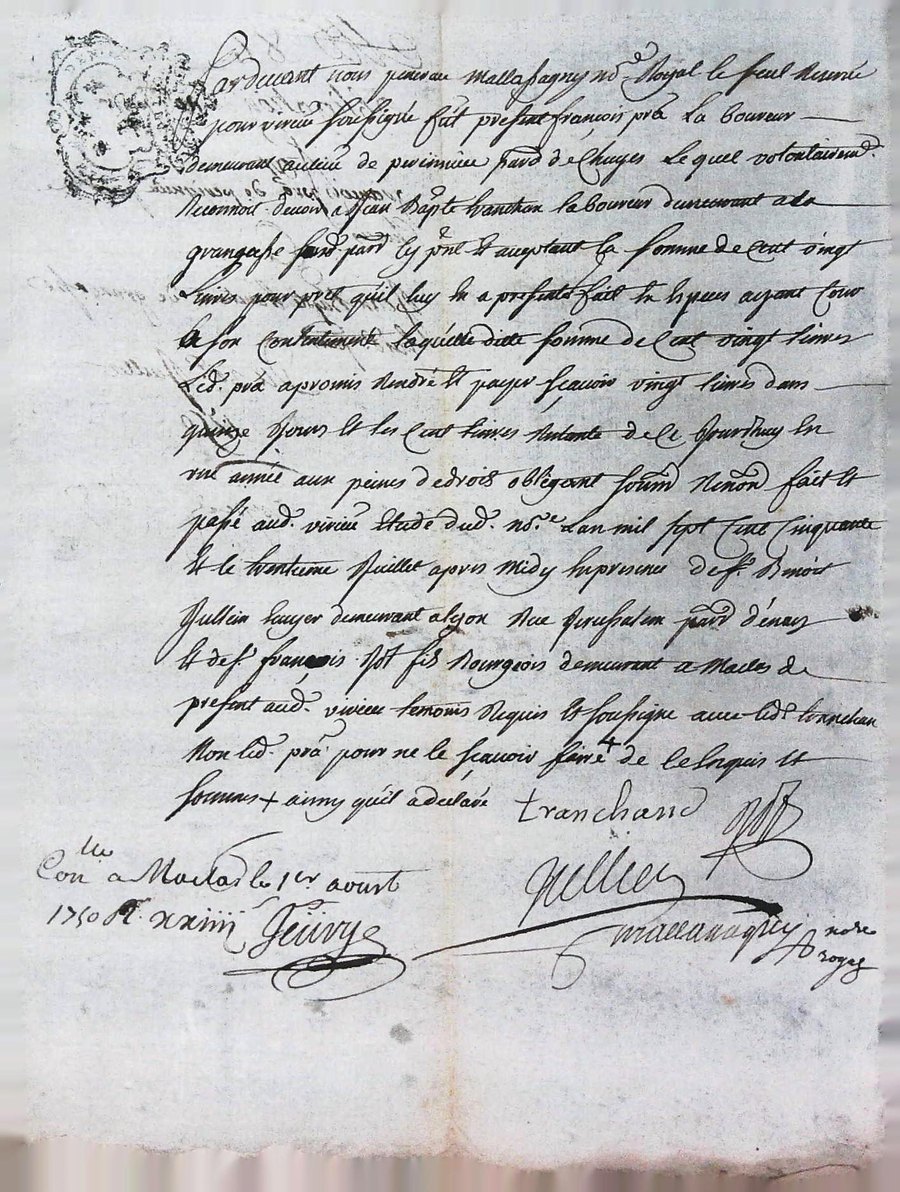 Pardevant nous Mallassagny no.re Royal le seul Reservé
pour virieu soussigné fût present françois prâ La boureur
demeurant au lieu de paroisse de Chuyes Lequel volontairemt.
Reconnoit devoir a Jean Bapte tranchan laboureur demeurant a la
grangasse susd. parr. icy pnt et aceptant la somme de Cent vingt
Livres pour pret qu'il luy en a presentt fait En Especes ayant Cour
a son Contentement laquelle ditte somme de Cent vingt livres
Led. prâ a promis Rendre et payer sçavoir vingt livres dans
quinze Jours et les Cent livres Restante de Ce Jourdhuy En
une année aux peines de droit obligeant soumd Renond fait et
passé aud. virieu Etude dud. no.re Lan mil sept Cent Cinquante
et le trentieme Juillet apres midy En presence de sr. Benoit
Jullein demeurant a lyon Rue Jerusalem d'énay
et de sr. françois fils Bourgeois demeurant a Maclas de
present aud. virieu temoins Requis et soussigne avec led. tranchan
Non led. prâ pour ne le sçavoir faire de Ce Enquis et
sommés + ainsy qu'il a declaré tranchand
Jullien
Con.lle a Maclas le 1er aoust
1750 R. xxiiii
Mallassagny no.re
royal